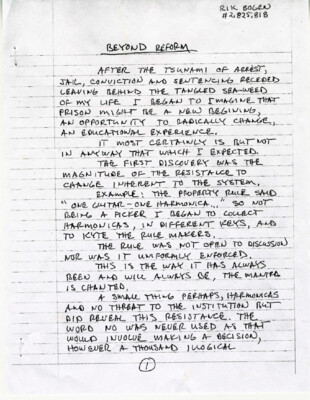 RIK BOGEN
#2,825,818
BEYOND REFORM
AFTER THE TSUNAMI OF ARREST,
JAIL, CONVICTION AND SENTENCING RECEEDED
LEAVING BEHIND THE TANGLED SEA-WEED
OF MY LIFE I BEGAN TO IMAGINE THAT
PRISON MIGHT BE A NEW BEGINING,
AN OPPORTUNITY TO RADICALLY CHANGE,
AN EDUCATIONAL EXPERIENCE.
IT MOST CERTAINLY IS BUT NOT
IN ANYWAY THAT WHICH I EXPECTED.
THE FIRST DISCOVERY WAS THE
MAGNITUDE OF THE RESISTANCE TO
CHANGE INHERENT TO THE SYSTEM.
EXAMPLE: THE PROPERTY RULE SAID
"ONE GUITAR-ONE HARMONICA..." SO NOT
BEING A PICKER I BEGAN TO COLLECT
HARMONICAS, IN DIFFERENT KEYS, AND
TO KYTE THE RULE MAKERS.
THE RULE WAS NOT OPEN TO DISCUSSION
NOR WAS IT UNIFORMLY ENFORCED.
THIS IS THE WAY IT HAS ALWAYS
BEEN AND WILL ALWAYS BE, THE MANTRA
IS CHANTED.
A SMALL THING PERHAPS, HARMONICAS
AND NO THREAT TO THE INSTITUTION BUT
DID REVEAL THIS RESISTANCE. THE
WORD NO WAS NEVER USED AS THAT
WOULD INVOLVE MAKING A DECISION,
HOWEVER A THOUSAND ILLOGICAL
1